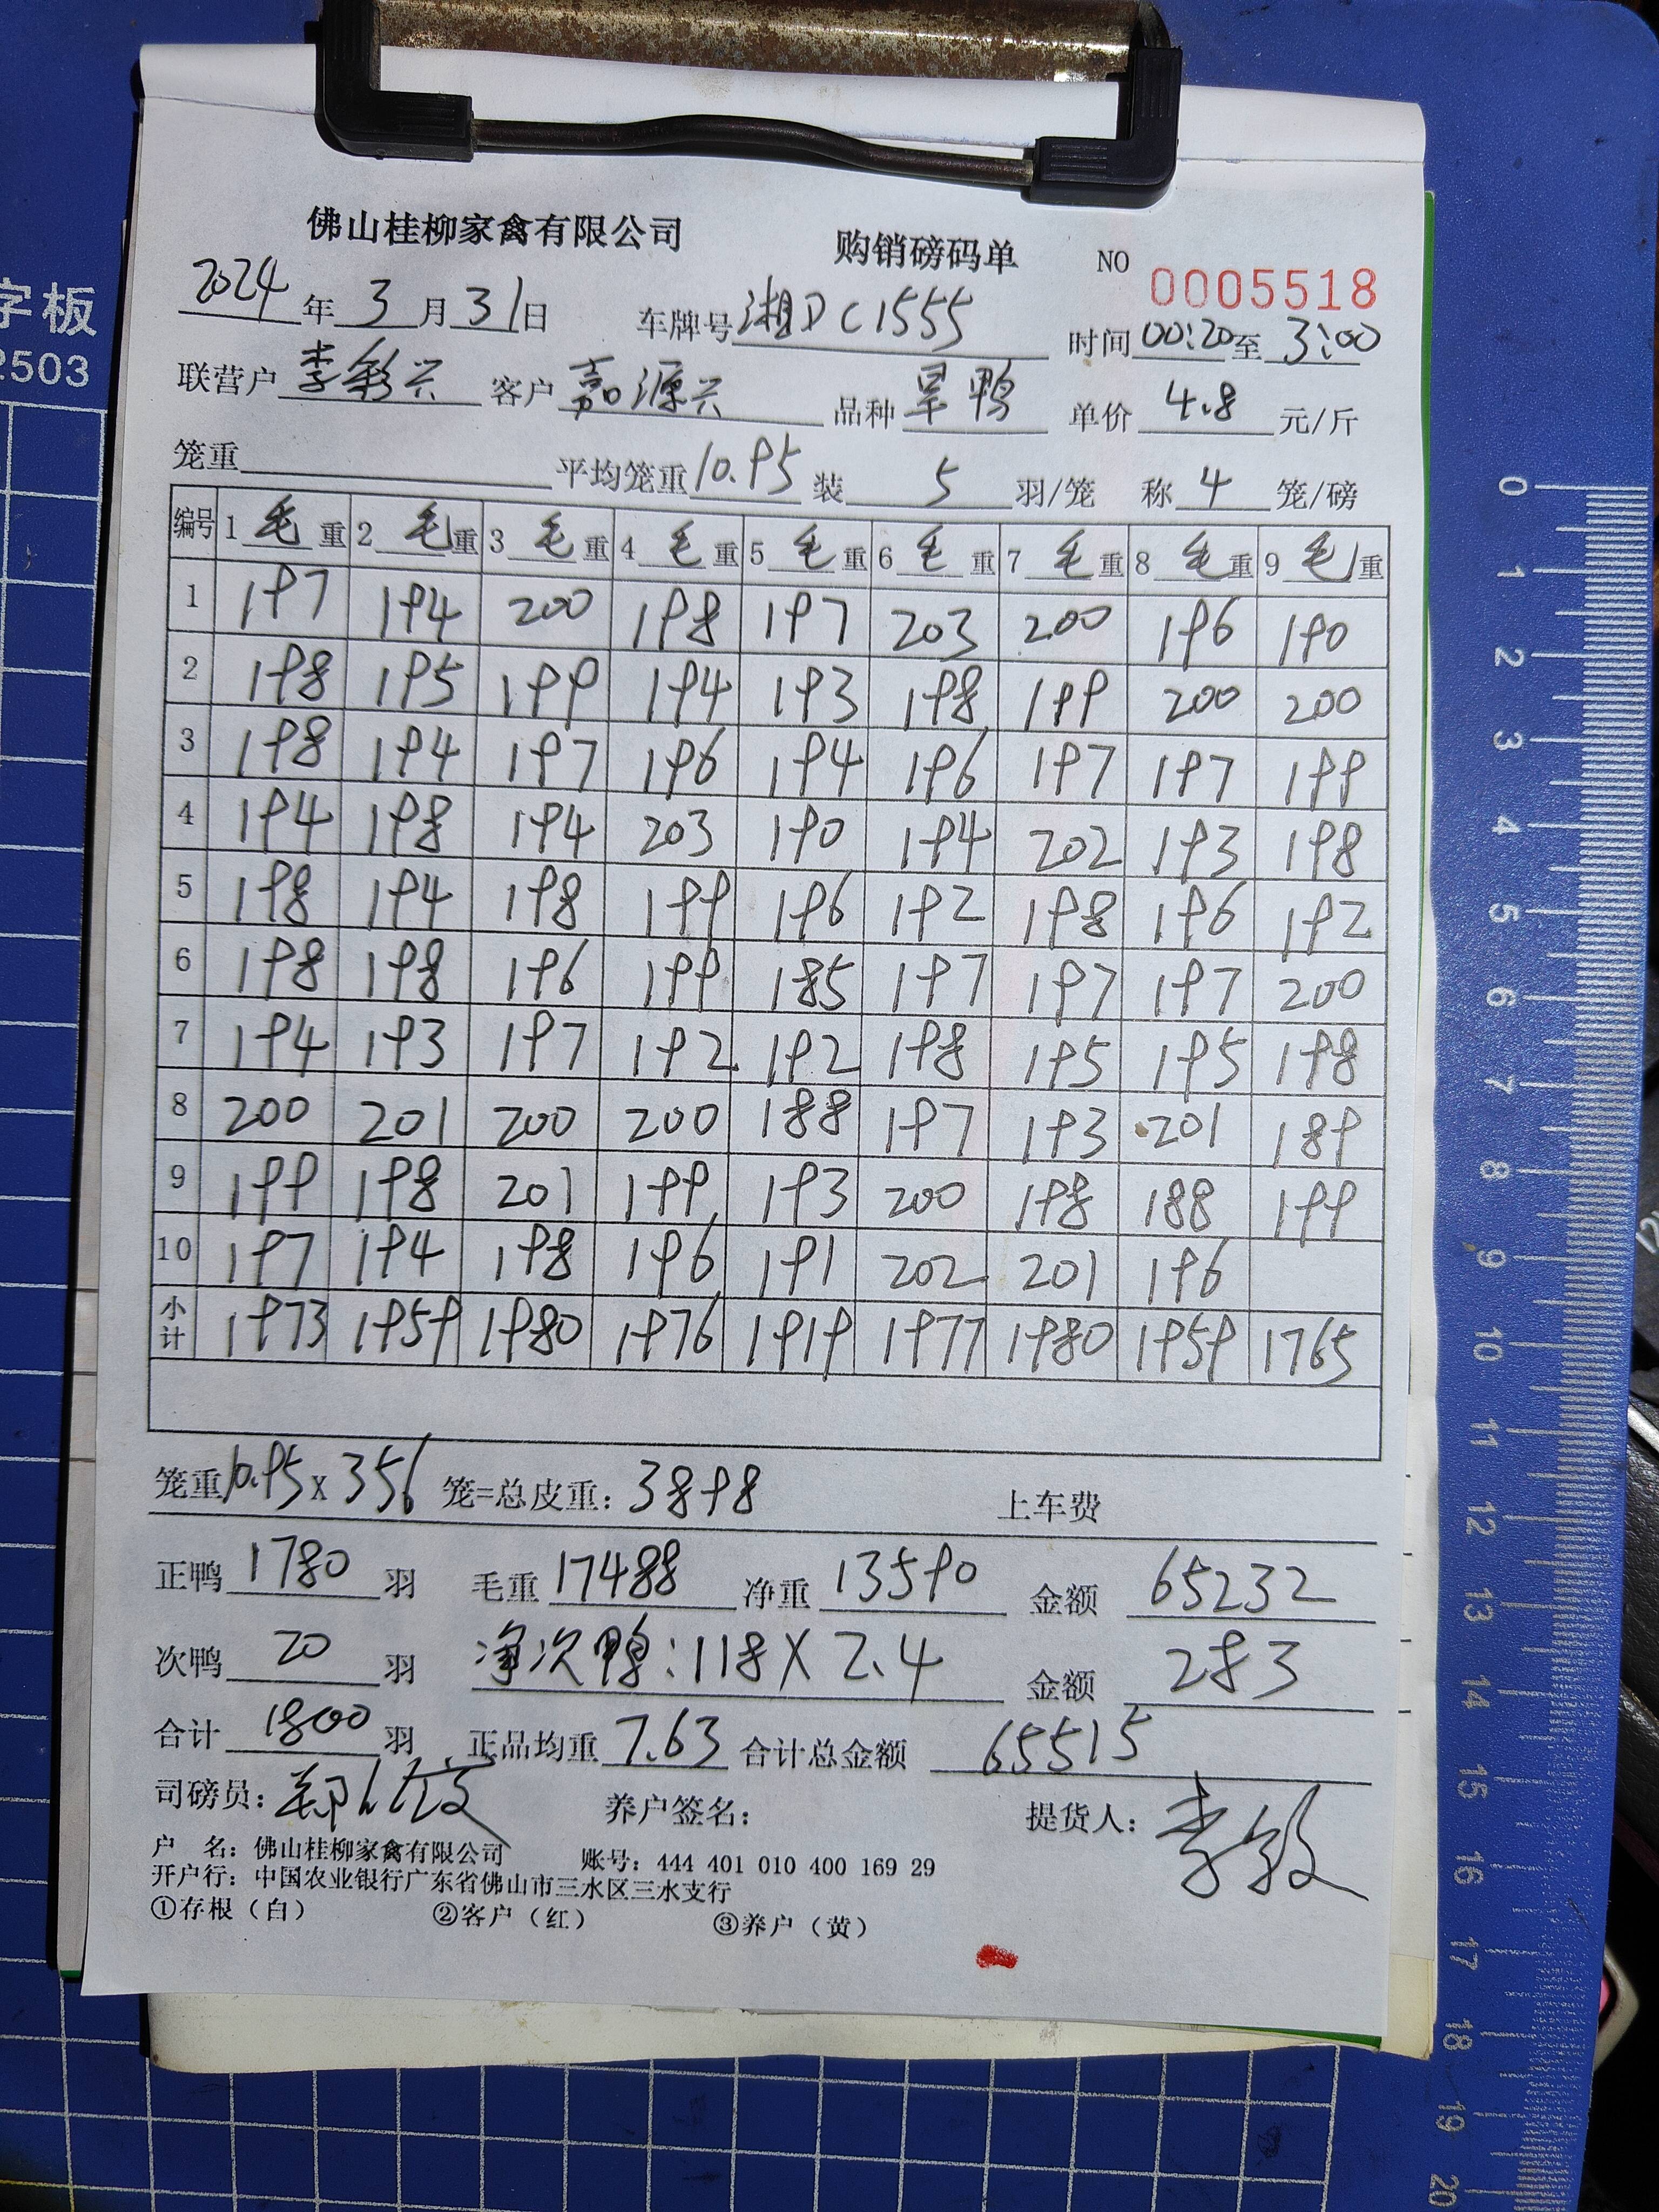 佛山桂柳家禽有限公司 购销磅码单 NO 0005518
2024年3月31日 车牌号湘DC1555 时间00:20至3:00
联营户李彩兴 客户嘉源兴 品种旱鸭 单价4.8元/斤
笼重 平均笼重10.95 装5羽/笼 称4笼/磅
编号 1毛重 2毛重 3毛重 4毛重 5毛重 6毛重 7毛重 8毛重 9毛重
1 197 194 200 198 197 203 200 196 190
2 198 195 199 194 193 198 199 200 200
3 198 194 197 196 194 196 197 197 199
4 194 198 194 203 190 194 202 193 198
5 198 194 198 199 196 192 198 196 192
6 198 198 196 199 185 197 197 197 200
7 194 193 197 192 192 198 195 195 198
8 200 201 200 200 188 197 193 201 189
9 199 198 201 199 193 200 198 188 199
10 197 194 198 196 191 202 201 196
小计 1973 1959 1980 1976 1919 1977 1980 1959 1765
笼重10.95x356笼=总皮重:3898 上车费
正鸭1780羽 毛重17488 净重13590 金额65232
次鸭20羽 净次鸭:118X2.4 金额283
合计1800羽 正品均重7.63 合计总金额65515
司磅员: 养户签名: 提货人:李敏
户 名:佛山桂柳家禽有限公司 账号:444 401 010 400 169 29
开户行:中国农业银行广东省佛山市三水区三水支行
①存根(白) ②客户(红) ③养户(黄)
字板
2503
0 1 2 3 4 5 6 7 8 9 10 11 12 13 14 15 16 17 18 19 20